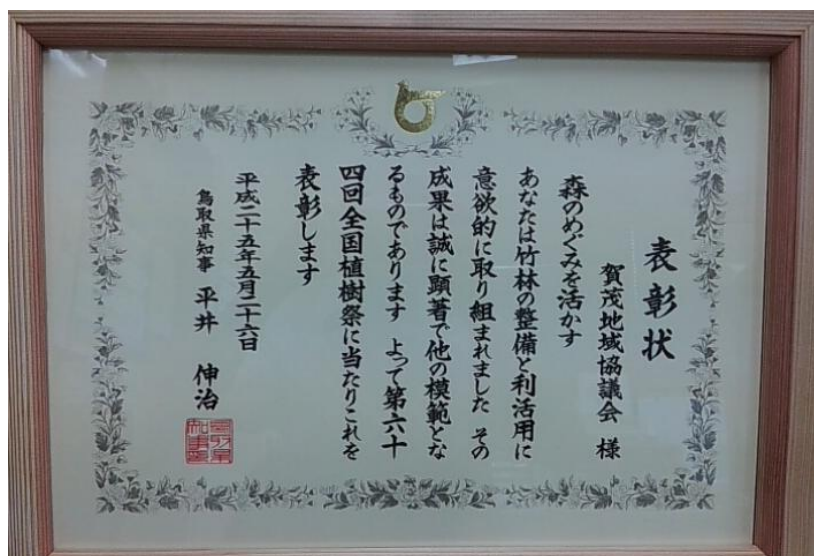 表彰状
賀茂地域協議会 様
森のめぐみを活かす
あなたは竹林の整備と利活用に
意欲的に取り組まれました その
成果は誠に顕著で他の模範とな
るものであります よって第六十
四回全国植樹祭に当たりこれを
表彰します
平成二十五年五月二十六日
鳥取県知事 平井 伸治